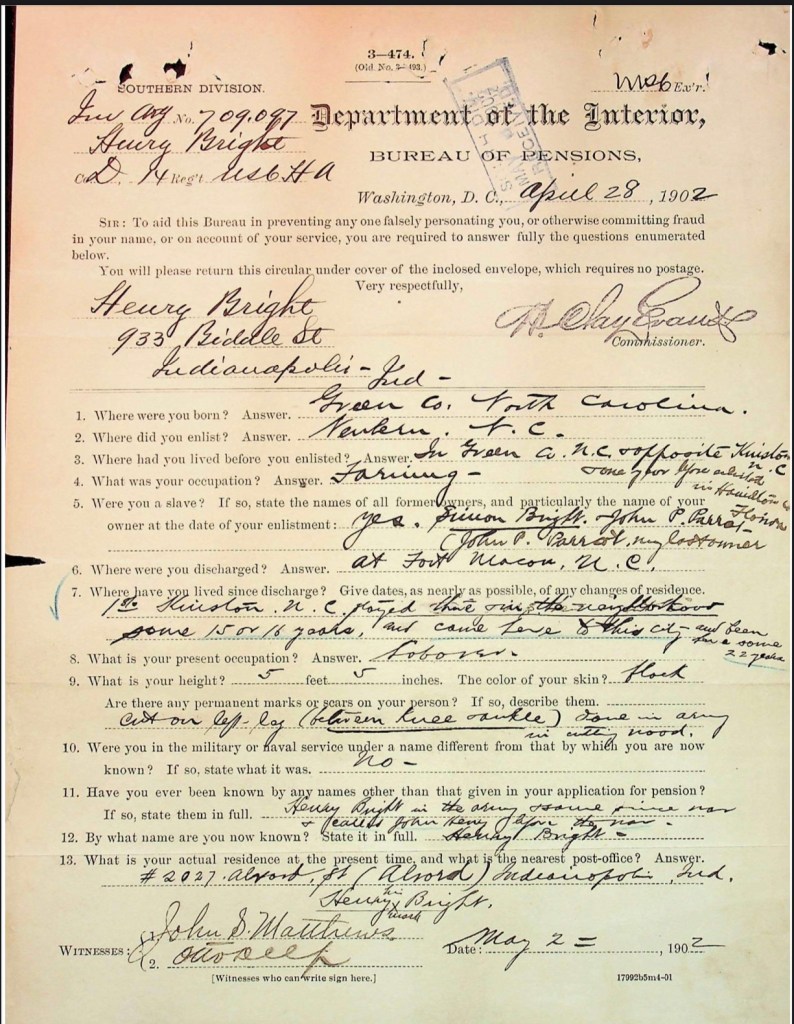 3—474.
(Old No. 3—493.)
SOUTHERN DIVISION.
Ex'r.
Inv Org No. 709.097 Department of the Interior,
Henry Bright
BUREAU OF PENSIONS,
Co. D. 14 Reg't US C H A
Washington, D. C., April 28, 1902
SIR: To aid this Bureau in preventing any one falsely personating you, or otherwise committing fraud
in your name, or on account of your service, you are required to answer fully the questions enumerated
below.
You will please return this circular under cover of the inclosed envelope, which requires no postage.
Very respectfully,
Henry Bright
933 Biddle St
H. Clay Evans
Commissioner.
Indianapolis - Ind -
1. Where were you born? Answer. Green Co. North Carolina.
2. Where did you enlist? Answer. Newbern. N. C -
3. Where had you lived before you enlisted? Answer. In Green Co. N.C. & opposite Kinston N. C
4. What was your occupation? Answer. Farming - & one year before enlisted
in Hamilton Co
5. Were you a slave? If so, state the names of all former owners, and particularly the name of your
Florida
owner at the date of your enlistment: yes. Simon Bright. John P. Parrot
(John P. Parrot, my last owner
6. Where were you discharged? Answer. at Fort Macon, N. C.,
7. Where have you lived since discharge? Give dates, as nearly as possible, of any changes of residence.
1st Kinston. N. C. stayed there & in the neighborhood
some 15 or 16 years, and came here to this city and been
here some
22 years
8. What is your present occupation? Answer. Laborer.
9. What is your height? 5 feet 5 inches. The color of your skin? black
Are there any permanent marks or scars on your person? If so, describe them.
cut on left leg (between knee & ankle) done in army
in cutting wood.
10. Were you in the military or naval service under a name different from that by which you are now
known? If so, state what it was. No -
11. Have you ever been known by any names other than that given in your application for pension?
If so, state them in full. Henry Bright in the army & same since war
& called John Henry before the war -
12. By what name are you now known? State it in full. Henry Bright -
13. What is your actual residence at the present time, and what is the nearest post-office? Answer.
# 2027. Alvord, St (Alvord) Indianapolis, Ind.
his
Henry x Bright.
mark
John S. Matthews
WITNESSES: Date: May 2 =, 1902
2. Otto Delp
[Witnesses who can write sign here.] 17992b5m4-01